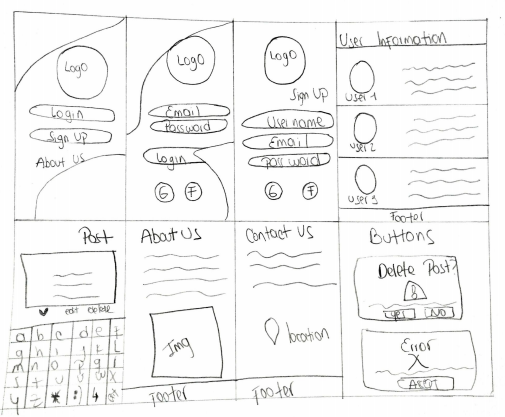 Logo
Login
Sign Up
About Us
Logo
Email
Password
Login
G F
Logo
Sign Up
Username
Email
Password
G F
User Information
User 1
User 2
User 3
Footer
Post
edit delete
a b c d e f
g h i j k L
m n o
s t u
y z * :) 4
About Us
Img
Footer
Contact Us
location
Footer
Buttons
Delete Post?
Yes No
Error
X